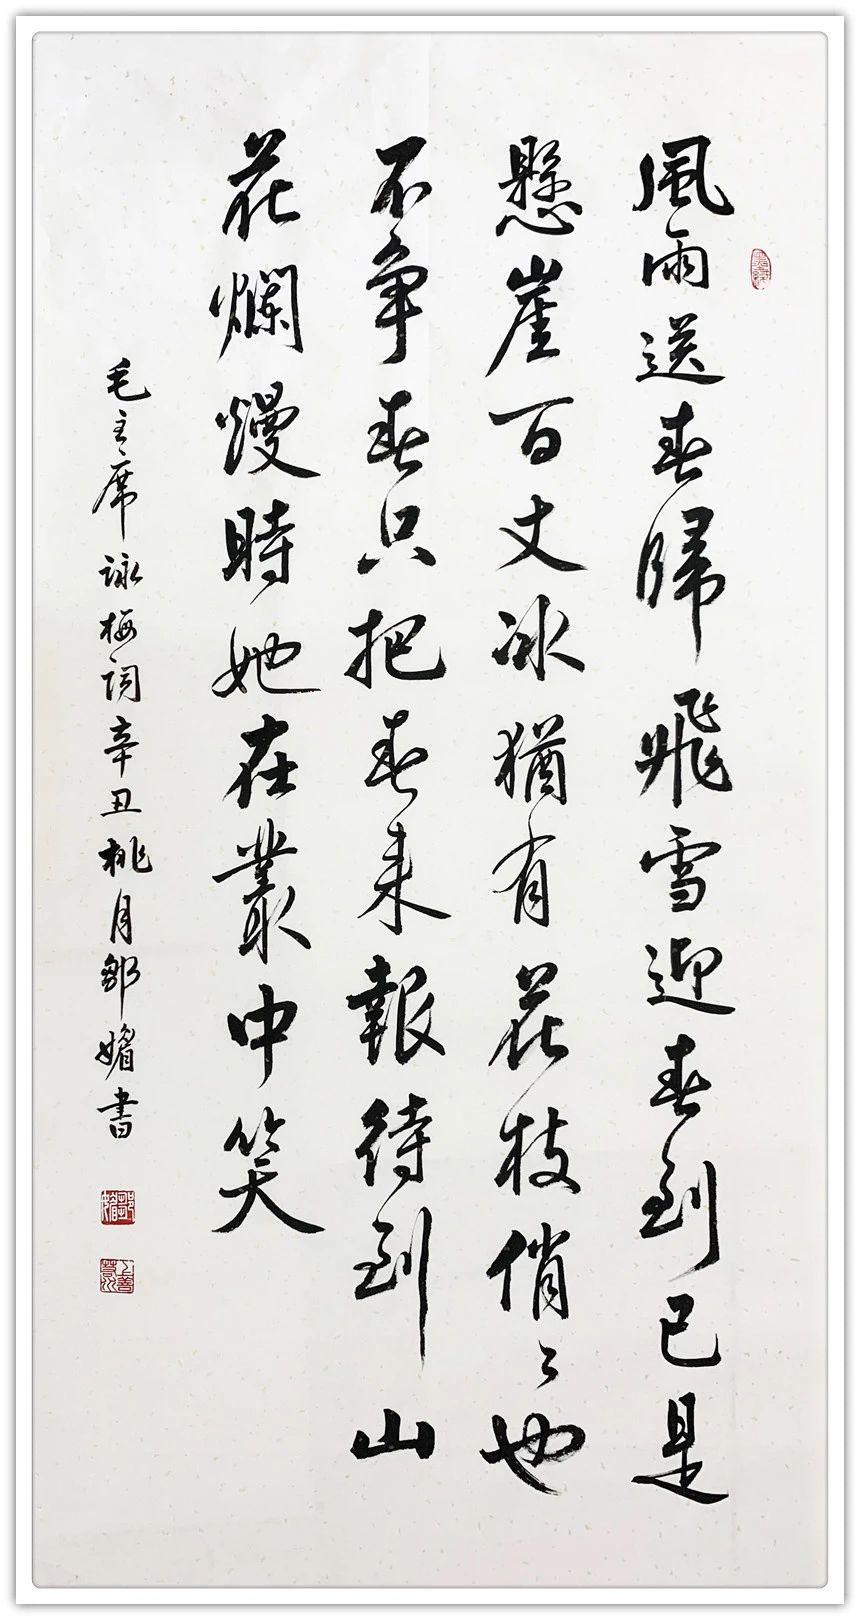 風雨送春歸飛雪迎春到已是
懸崖百丈冰猶有花枝俏〻也
不爭春只把春来報待到山
花爛熳時她在叢中笑
毛主席詠梅詞辛丑桃月鄒媚書
鄒媚
上善若水